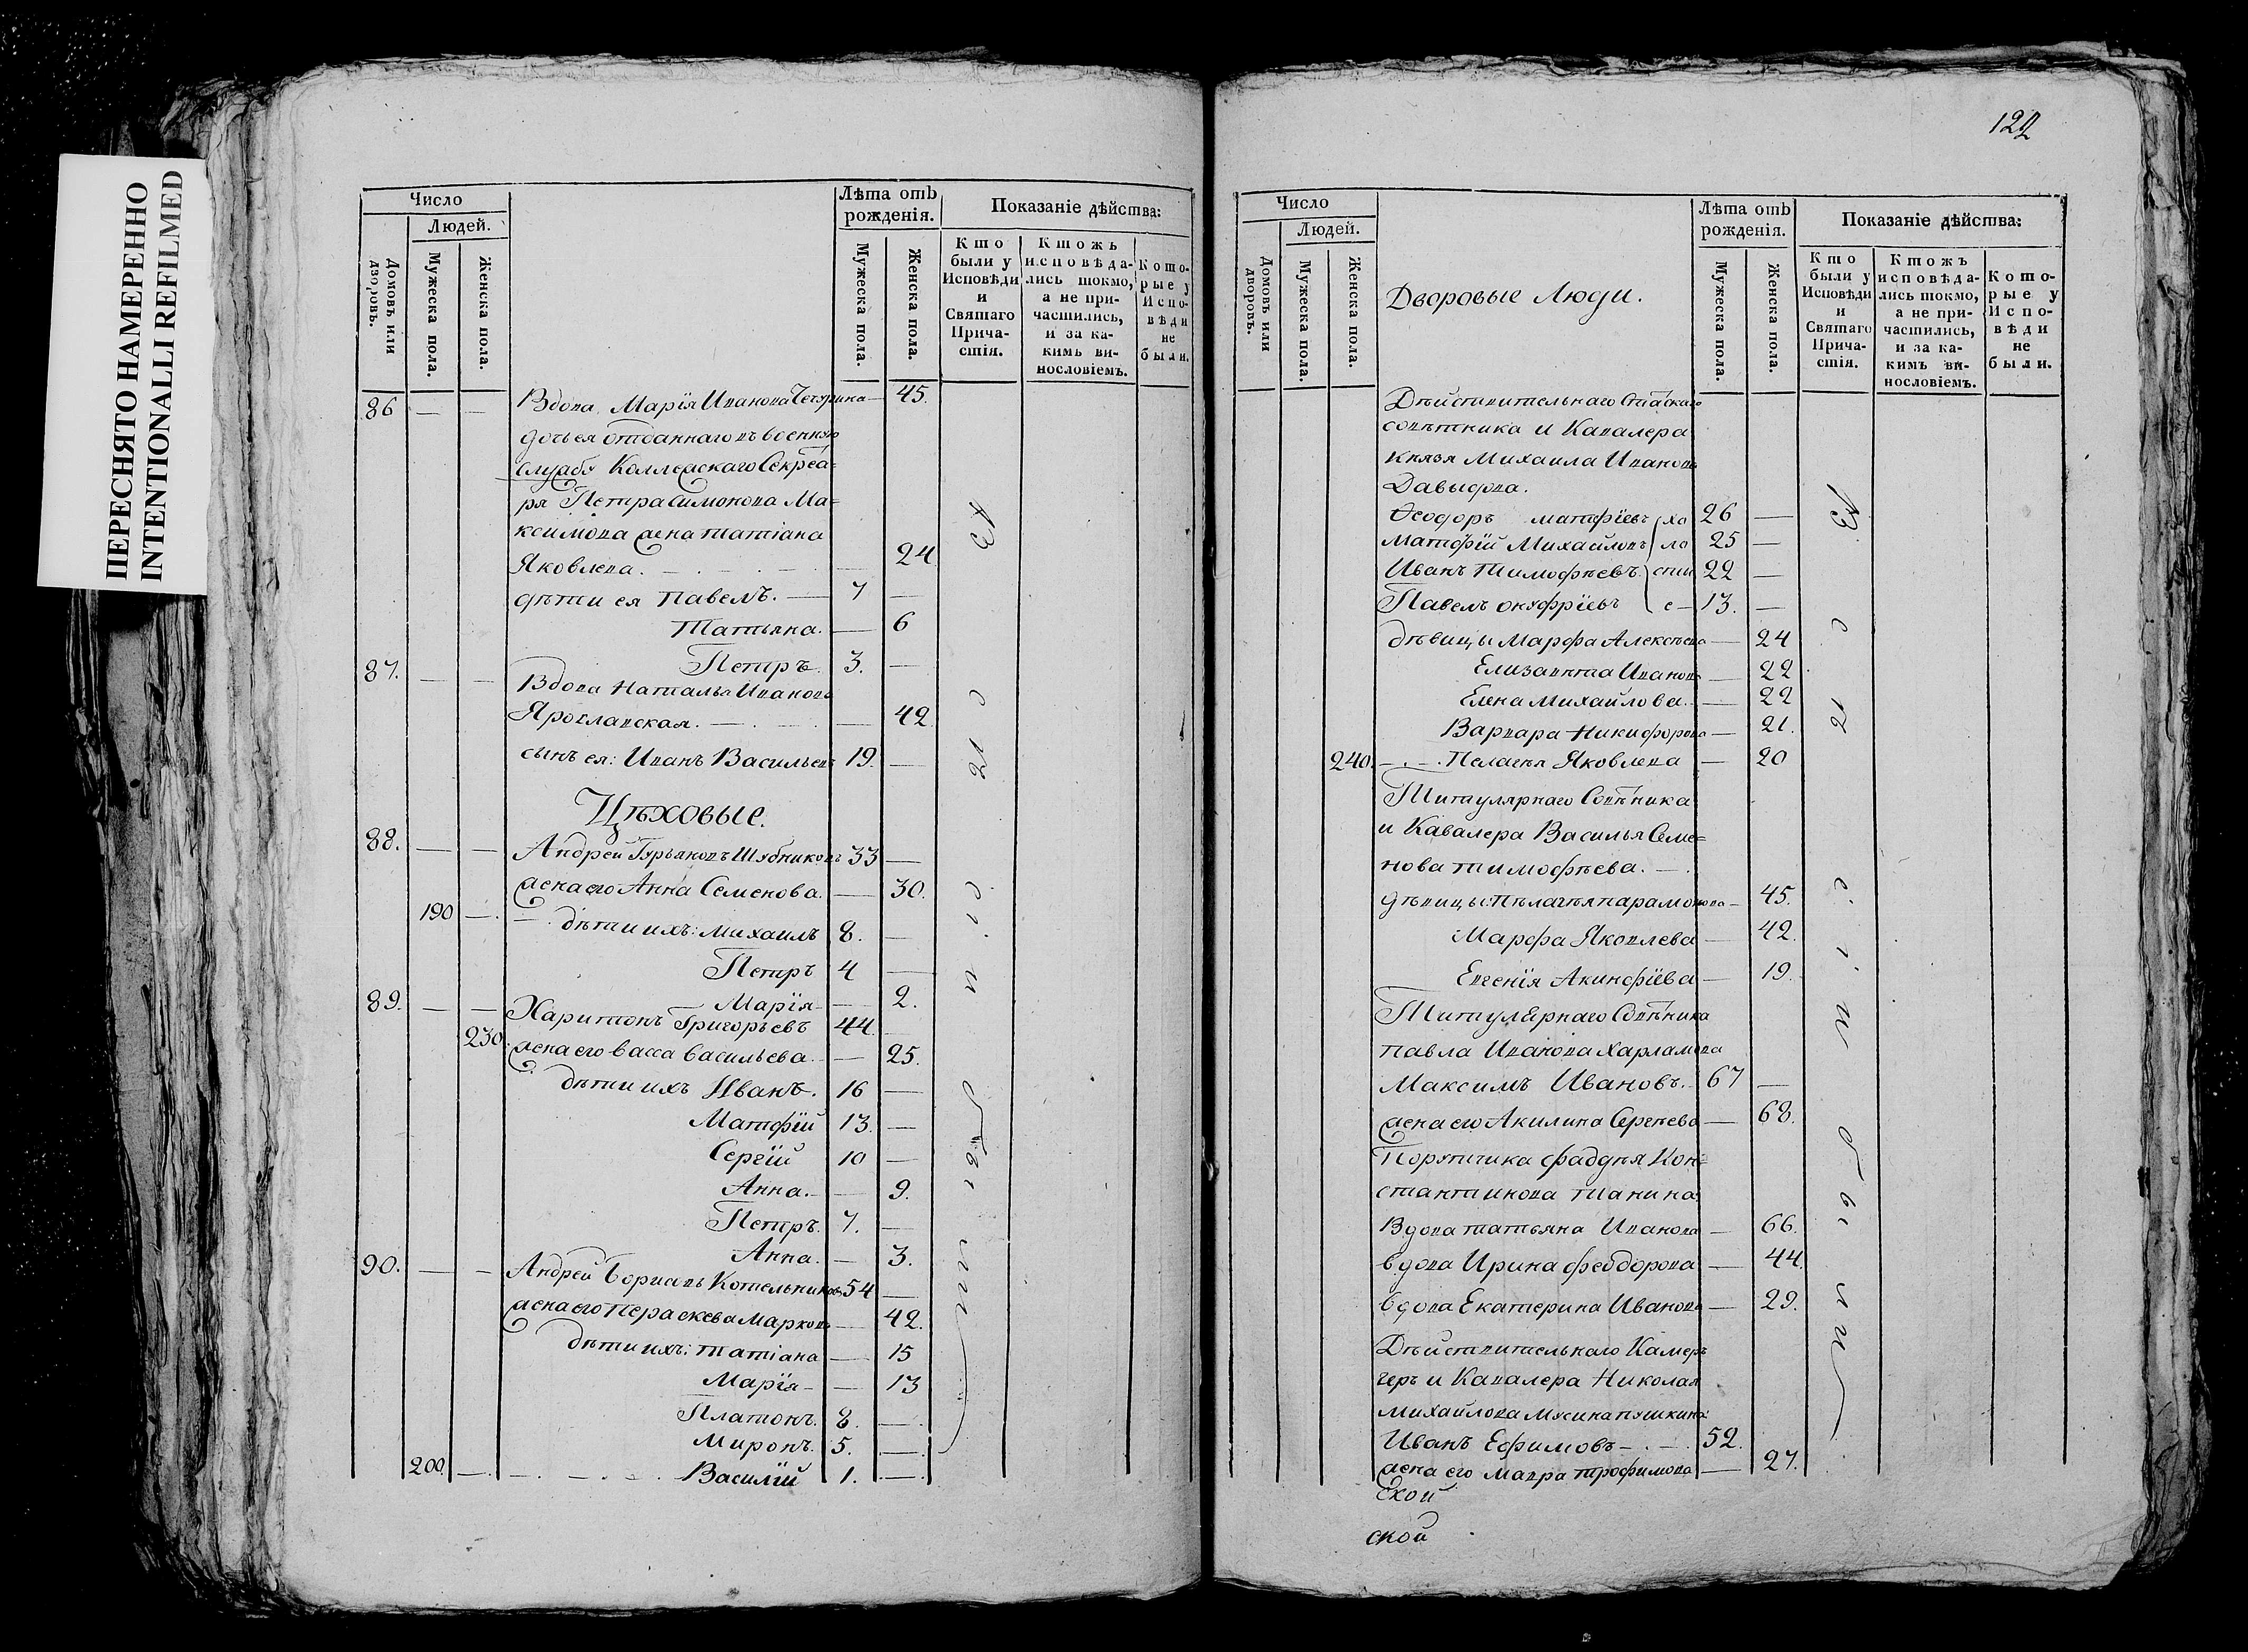 ПЕРЕСНЯТО НАМЕРЕННО
INTENTIONALLI REFILMED
Число
Людей.
Домовъ или дворовъ.
Мужеска пола.
Женска пола.
Лѣта отъ рожденія.
Мужеска пола.
Женска пола.
Показаніе дѣйства:
Кто были у Исповѣди и Святаго Причастія.
Ктожъ исповѣдались токмо, а не причастились, и за какимъ винословіемъ.
Которые у Исповѣди не были.
86 — — Вдова Марія Иванова — 45.
дочь ея отданнаго въ военную
службу Коллежскаго Секрета=
ря Петра Симонова Ма=
ксимова жена Татіана
Яковлева. — 24
дѣти ея Павелъ. — 7 —
Татьяна. — 6
Петръ. 3. —
87. — — Вдова Наталья Иванова
Ярославская. — 42
сынъ ея: Иванъ Васильевъ 19. —
Цѣховые.
88. — — Андрей Гурьяновъ Шубниковъ 33 —
жена его Анна Семенова. — 30.
190 — дѣти ихъ: Михаилъ 8. —
Петръ 4 —
Марія — 2.
89. — — Харитонъ Григорьевъ 44. —
230. жена его Васса Васильева. — 25.
дѣти ихъ Иванъ. 16 —
Матфій 13. —
Сергій 10 —
Анна. — 9.
Петръ. 7. —
Анна. — 3.
90. — — Андрей Борисовъ Котельниковъ 54 —
жена его Параскева Маркова — 42.
дѣти ихъ: Татіана — 15
Марія — 13
Платонъ. 8. —
Миронъ. 5. —
200. — Василій 1. —
122
Число
Людей.
Домовъ или дворовъ.
Мужеска пола.
Женска пола.
Дворовые Люди.
Лѣта отъ рожденія.
Мужеска пола.
Женска пола.
Показаніе дѣйства:
Кто были у Исповѣди и Святаго Причастія.
Ктожъ исповѣдались токмо, а не причастились, и за какимъ винословіемъ.
Которые у Исповѣди не были.
Дѣйствительнаго Статскаго
совѣтника и Кавалера
Князя Михаила Иванова
Давыдова.
Ѳеодоръ Матфіевъ хо 26 —
Матфій Михайловъ ло 25 —
Иванъ Тимофѣевъ. сты 22 —
Павелъ Онуфріевъ е — 13. —
дѣвицы Марфа Алексѣева — 24
Елизавѣта Иванова — 22
Елена Михайлова. — 22
Варвара Никифорова — 21.
240. — Пелагѣя Яковлева — 20
Титулярнаго Совѣтника
и Кавалера Василья Семе=
нова Тимофѣева. —
дѣвицы: Пѣлагѣя Парамонова — 45.
Марфа Яковлева — 42.
Евгенія Акинфіева — 19.
Титулярнаго Совѣтника
Павла Иванова Харламова
Максимъ Ивановъ. 67 —
жена его Акилина Сергѣева — 68.
Порутчика Фаддѣя Кон=
стантинова Танина
Вдова Татьяна Иванова — 66.
вдова Ирина Феодорова — 44.
вдова Екатерина Иванова — 29.
Дѣйствительнаго Камер=
геръ и Кавалера Николая
Михайлова Мусина пушкина
Иванъ Ефимовъ — 52.
жена его Мавра Трофимова — 27.
ской